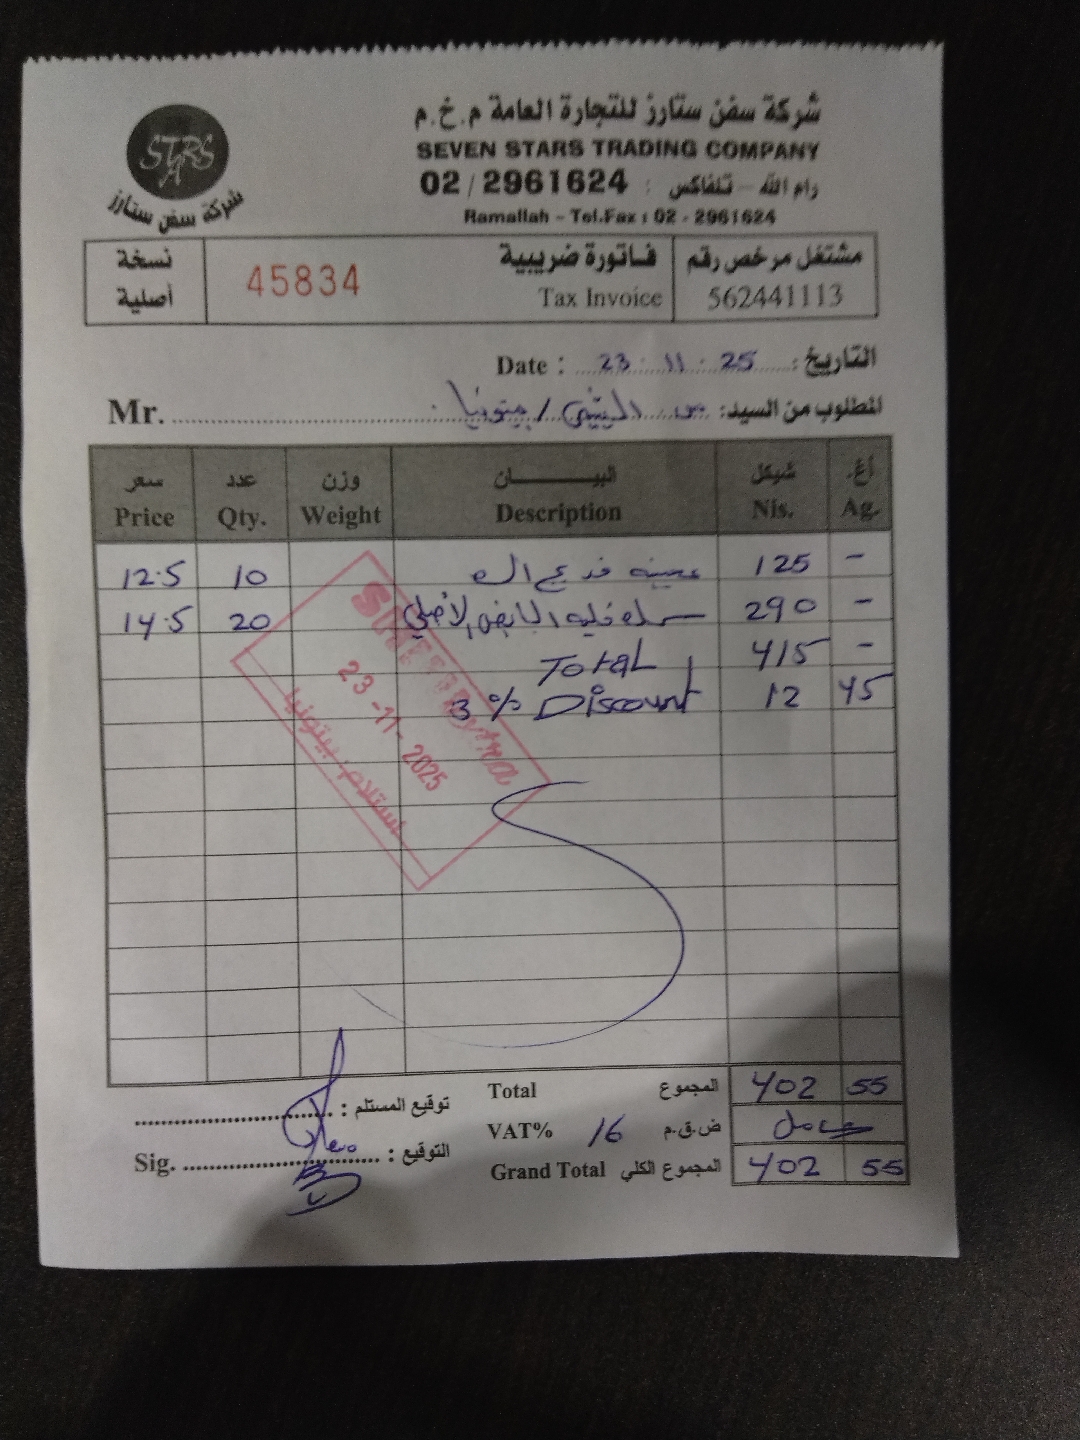 شركة سفن ستارز للتجارة العامة م.خ.م
SEVEN STARS TRADING COMPANY
02 / 2961624 : رام الله - تلفاكس
Ramallah - Tel.Fax : 02 - 2961624
STARS
شركة سفن ستارز
نسخة أصلية
45834
فاتورة ضريبية
Tax Invoice
مشتغل مرخص رقم
562441113
Date : 23 . 11 . 25 التاريخ :
Mr. المطلوب من السيد: / بيتونيا
سعر عدد وزن البيـــــان شيكل أغ.
Price Qty. Weight Description Nis. Ag.
12.5 10 125 -
14.5 20 290 -
Total 415 -
3 % Discount 12 45
23 -11- 2025
استلام بيتونيا
Total المجموع 402 55
VAT% 16 ض.ق.م
Grand Total المجموع الكلي 402 55
توقيع المستلم :
Sig. التوقيع :